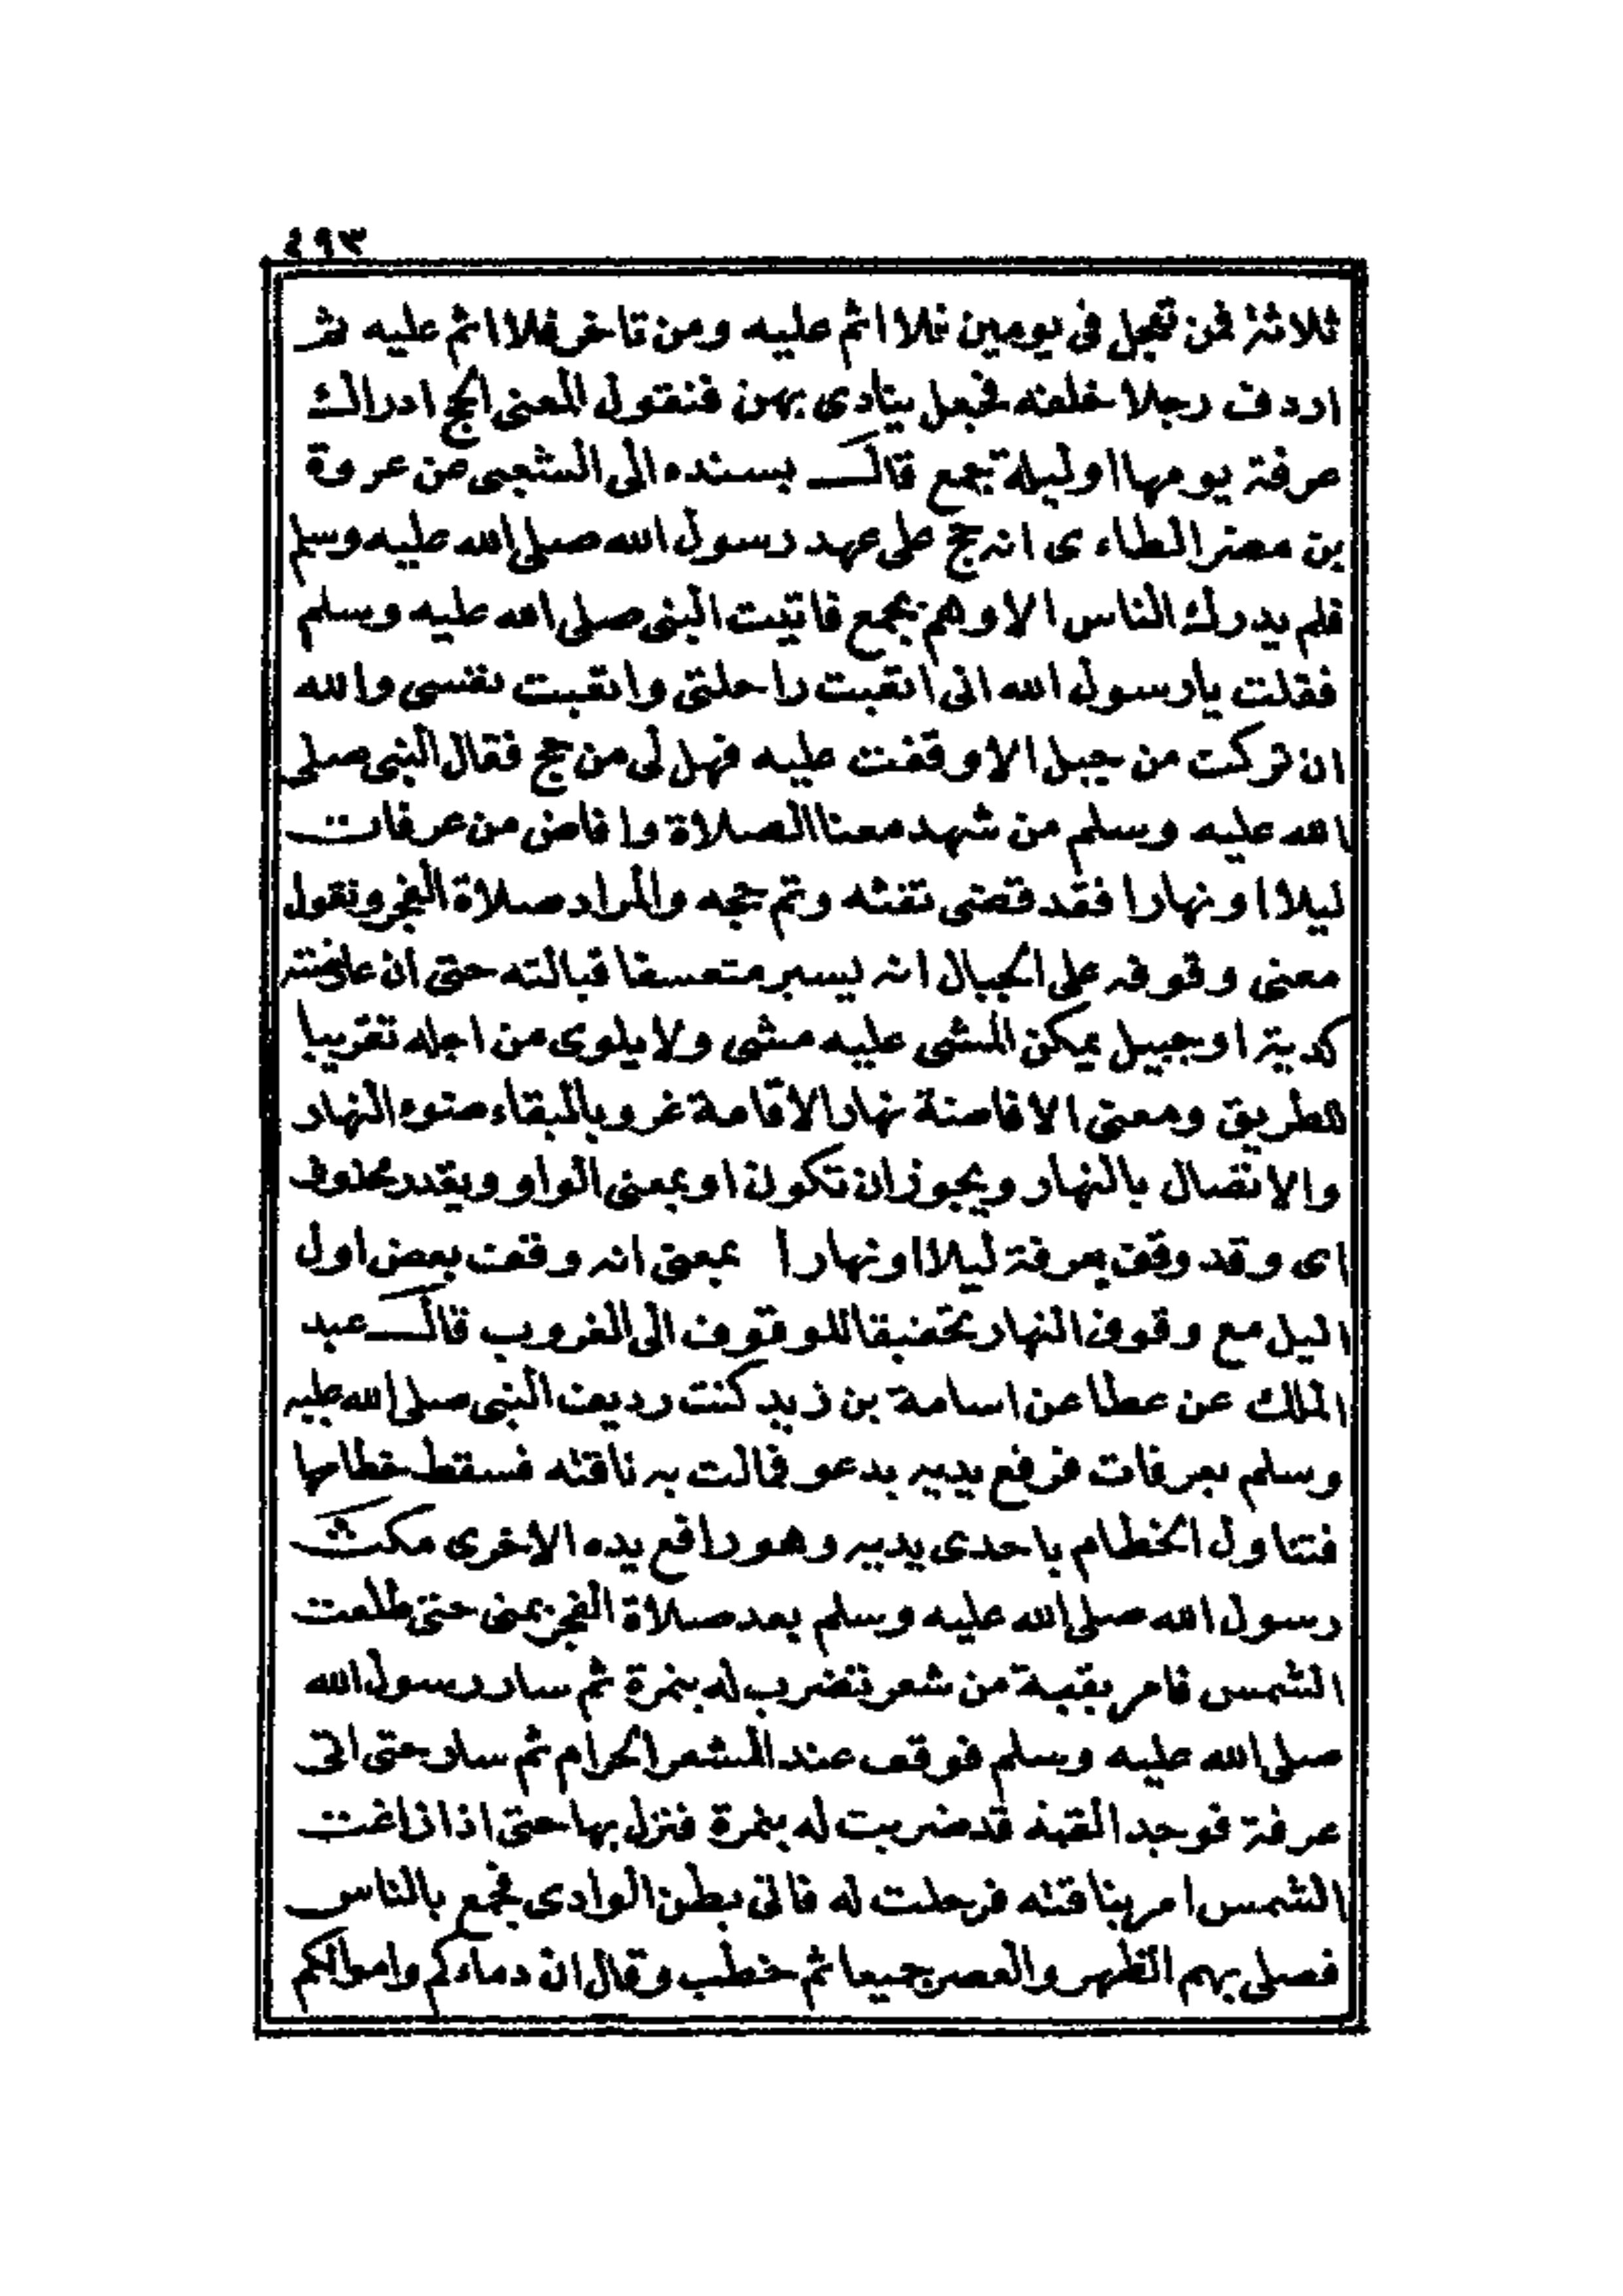 ٤٩٣
ثلاثة فمن تعجل فى يومين فلا اثم عليه ومن تاخر فلا اثم عليه ثم
اردف رجلا خلفه فجعل ينادى بهن فنقول المعنى الحج ادراك
عرفة يومها او ليلة تجمع قال بسنده الى الشعبى عن عروة
بن مضر الطاءى انه حج على عهد رسول الله صلى الله عليه وسلم
فلم يدرك الناس الا وهم بجمع فاتيت النبى صلى الله عليه وسلم
فقلت يا رسول الله انى اتعبت راحلتى واتعبت نفسى والله
ان تركت من جبل الا وقفت عليه فهل لى من حج فقال النبى صلى
الله عليه وسلم من شهد معنا الصلاة وافاض من عرفات
ليلا او نهارا فقد قضى تفثه وتم حجه والمراد صلاة الفجر ونقول
معنى وقوفه على الجبال انه يسير متعسفا قبالته حتى ان
كدية او جبيل يمكن المشى عليه مشى ولا يلوى من اجله تقريبا
للطريق ومعنى الافاضة نهارا الاقامة غروبا لبقاء ضوء النهار
والاتصال بالنهار ويجوز ان تكون او بمعنى الواو ويقدر محذوف
اى وقد وقف بعرفة ليلا او نهارا بمعنى انه وقف بعض اول
اليل مع وقوف النهار للوقوف الى الغروب قال عبد
الملك عن عطا عن اسامة بن زيد كنت رديف النبى صلى الله عليه
وسلم بعرفات فرفع يديه يدعو فمالت به ناقته فسقط خطامها
فتناول الخطام باحدى يديه وهو رافع يده الاخرى مكث
رسول الله صلى الله عليه وسلم بعد صلاة الفجر بمنى حتى طلعت
الشمس فامر بقبة من شعر تضرب له بنمرة ثم سار رسول الله
صلى الله عليه وسلم فوقف عند المشعر الحرام ثم سار حتى اتى
عرفة فوجد القبة قد ضربت له بنمرة فنزل بها حتى اذا زاغت
الشمس امر بناقته فرحلت له فاتى بطن الوادى فجمع بالناس
فصلى بهم الظهر والعصر جميعا ثم خطب وقال ان دماءكم واموالكم